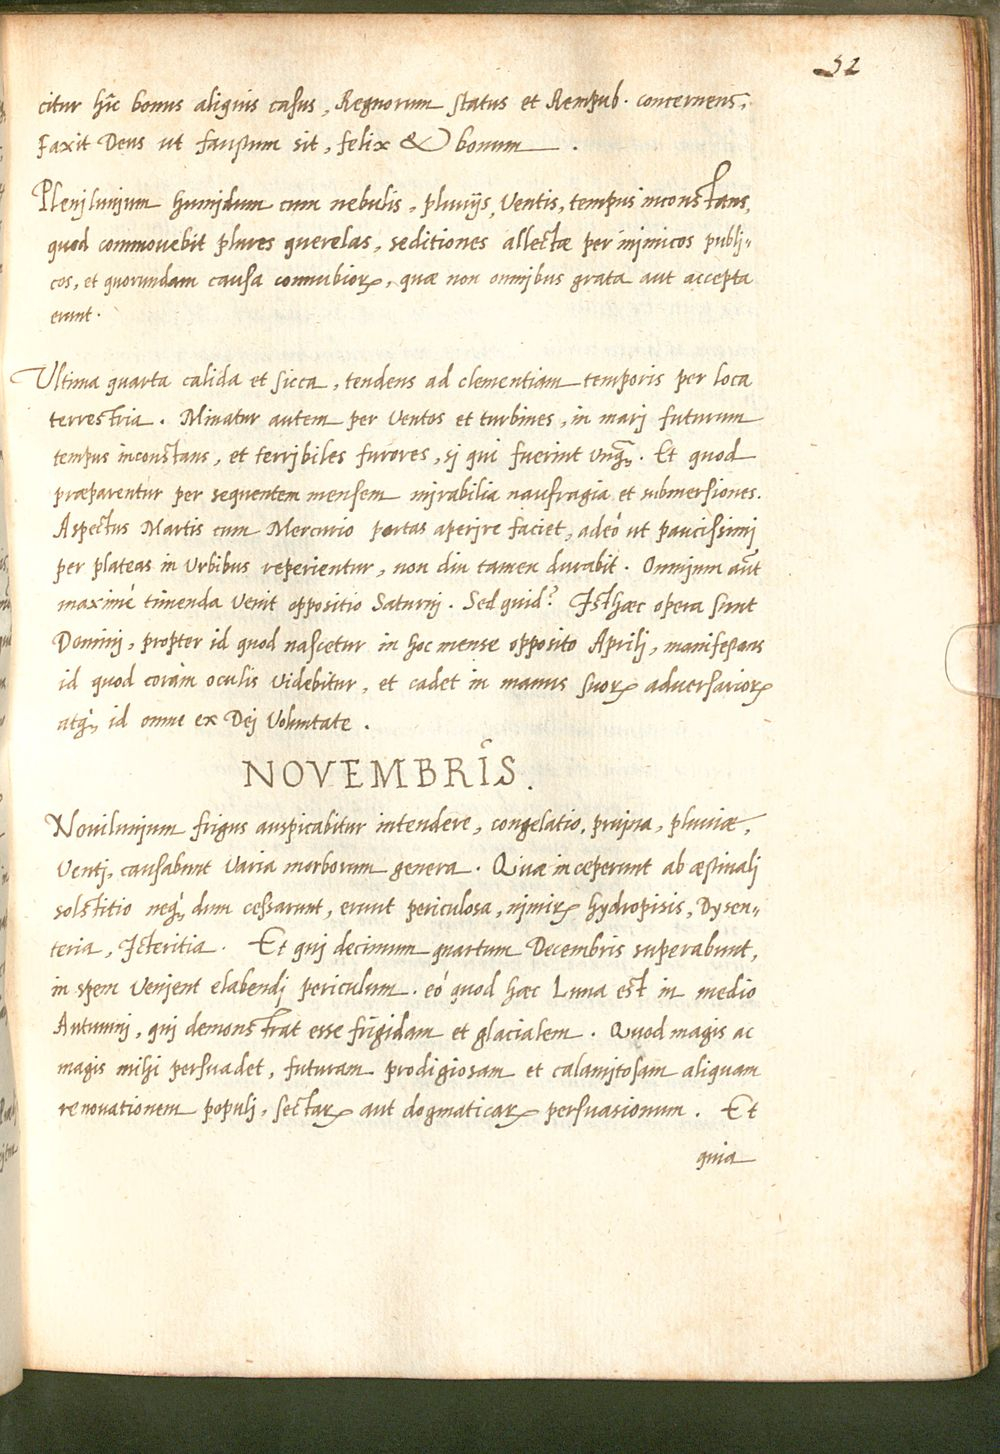 52
citur hîc bonus aliquis casus, Regnorum status et Rempub. concernens,
Faxit Deus ut faustum sit, felix & bonum.
Plenilunium humidum cum nebulis, pluuijs, Ventis, tempus inconstans,
quod commouebit plures querelas, seditiones allectæ per inimicos publi-
cos, et quorundam causa connubiorꝝ, quæ non omnibus grata aut accepta
erunt.
Ultima quarta calida et sicca, tendens ad clementiam temporis per loca
terrestria. Minatur autem per Ventos et turbines, in mari futurum
tempus inconstans, et terribiles furores, si qui fuerint unq̃. Et quod
præparentur per sequentem mensem mirabilia naufragia et submersiones.
Aspectus Martis cum Mercurio portas aperire faciet, adeò ut paucissimi
per plateas in Urbibus reperientur, non diu tamen durabit. Omnium aũt
maximè timenda venit oppositio Saturnj. Sed quid? Isthæc opera sunt
Dominj, propter id quod nascetur in hoc mense opposito Aprilj, manifestans
id quod coràm oculis videbitur, et cadet in manus suorꝝ adversariorꝝ
atq; id omne ex Dej Voluntate.
NOVEMBRIS.
Nouilunium frigus auspicabitur intendere, congelatio, pruina, pluuiæ,
Ventj, causabunt varia morborum genera. Quæ inceperunt ab æstiualj
solstitio neq; dum cessarunt, erunt periculosa, nimirꝝ hydropisis, Dysen-
teria, Icteritia. Et qui decimum quartum Decembris superabunt,
in spem venient elabendj periculum. eò quod hæc Luna est in medio
Autumnj, qui demonstrat esse frigidam et glacialem. Quod magis ac
magis mihi persuadet, futuram prodigiosam et calamitosam aliquam
renovationem populj, sectarꝝ aut dogmaticarꝝ persuasionum. Et
quia